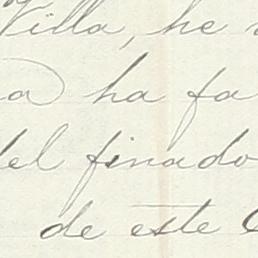 Villa, he
a ha fa
del finado
de este